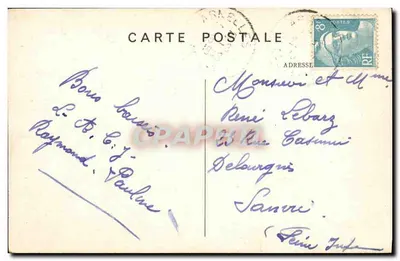 CARTE POSTALE
ADRESSE
RF
Bons baisers
Raymond. Pauline
Monsieur et Mme
René Lebarz
Rue Casimir
Delavigne
Sanvic
(Seine Infre